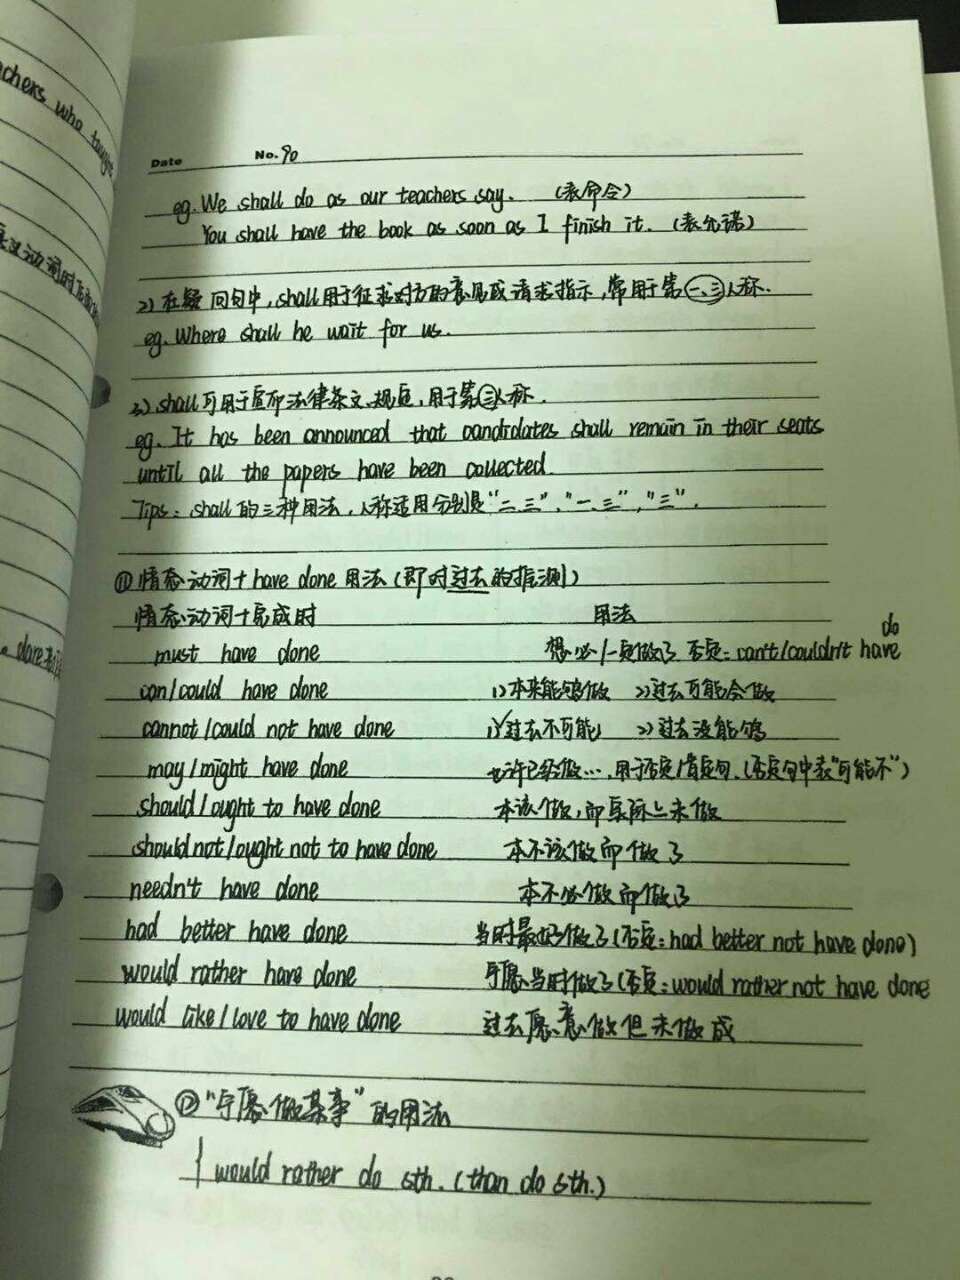 achers who taught
Date No. 90
eg. We shall do as our teachers say. (表命令)
You shall have the book as soon as I finish it. (表允诺)
2) 在疑问句中, shall用于征求对方的意见或请求指示, 常用于第一、三人称.
eg. Where shall he wait for us.
3) shall可用于宣布法律条文、规定, 用于第三人称.
eg. It has been announced that candidates shall remain in their seats
until all the papers have been collected.
Tips: shall的三种用法, 人称适用分别是“二、三”, “一、三”, “三”.
⑪ 情态动词+have done 用法 (即对过去的推测)
情态动词+完成时 用法
do
must have done 想必/一定做了 否定: can't/couldn't have
can/could have done 1) 本来能够做 2) 过去可能会做
cannot/could not have done 1) 过去不可能 2) 过去没能够
may/might have done 也许已经做…, 用于否定/肯定句. (否定句中表“可能不”)
should/ought to have done 本该做, 而实际上未做
should not/ought not to have done 本不该做而做了
needn't have done 本不必做而做了
had better have done 当时最好做了 (否定: had better not have done)
would rather have done 宁愿当时做了 (否定: would rather not have done
would like/love to have done 过去愿意做但未做成
⑫ “宁愿做某事”的用法
would rather do sth. (than do sth.)